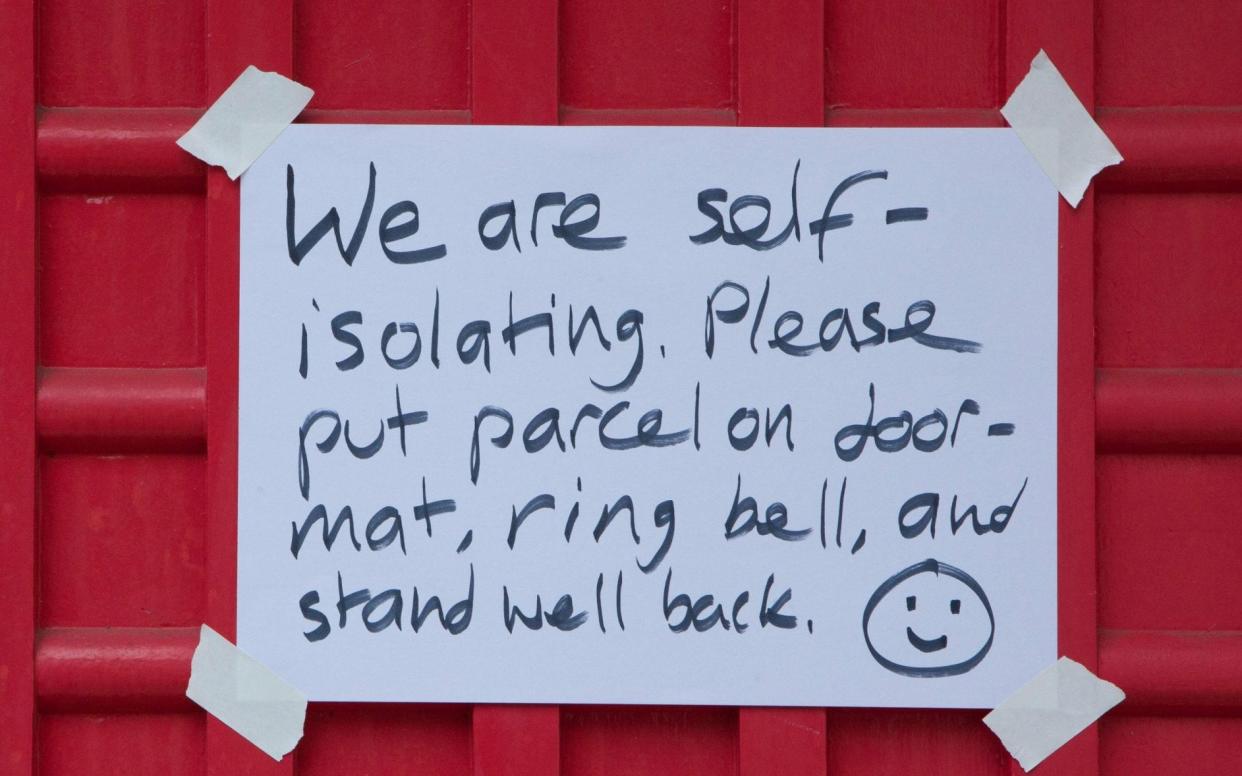 We are self-
isolating. Please
put parcel on door-
mat, ring bell, and
stand well back.